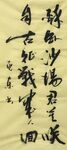 醉卧沙場君莫笑
自古征戰幾人回